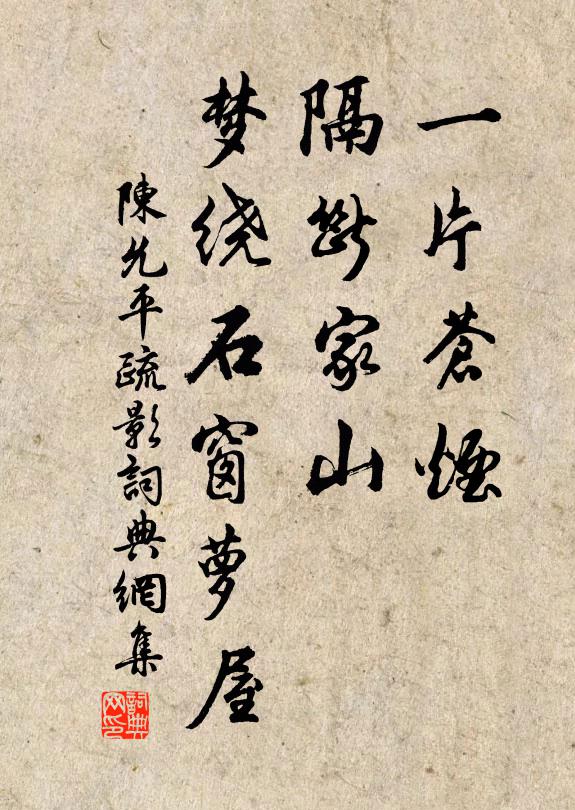 一片苍煙
隔断家山
梦绕石窗萝屋
陳允平疏影詞典網集
詞典网印